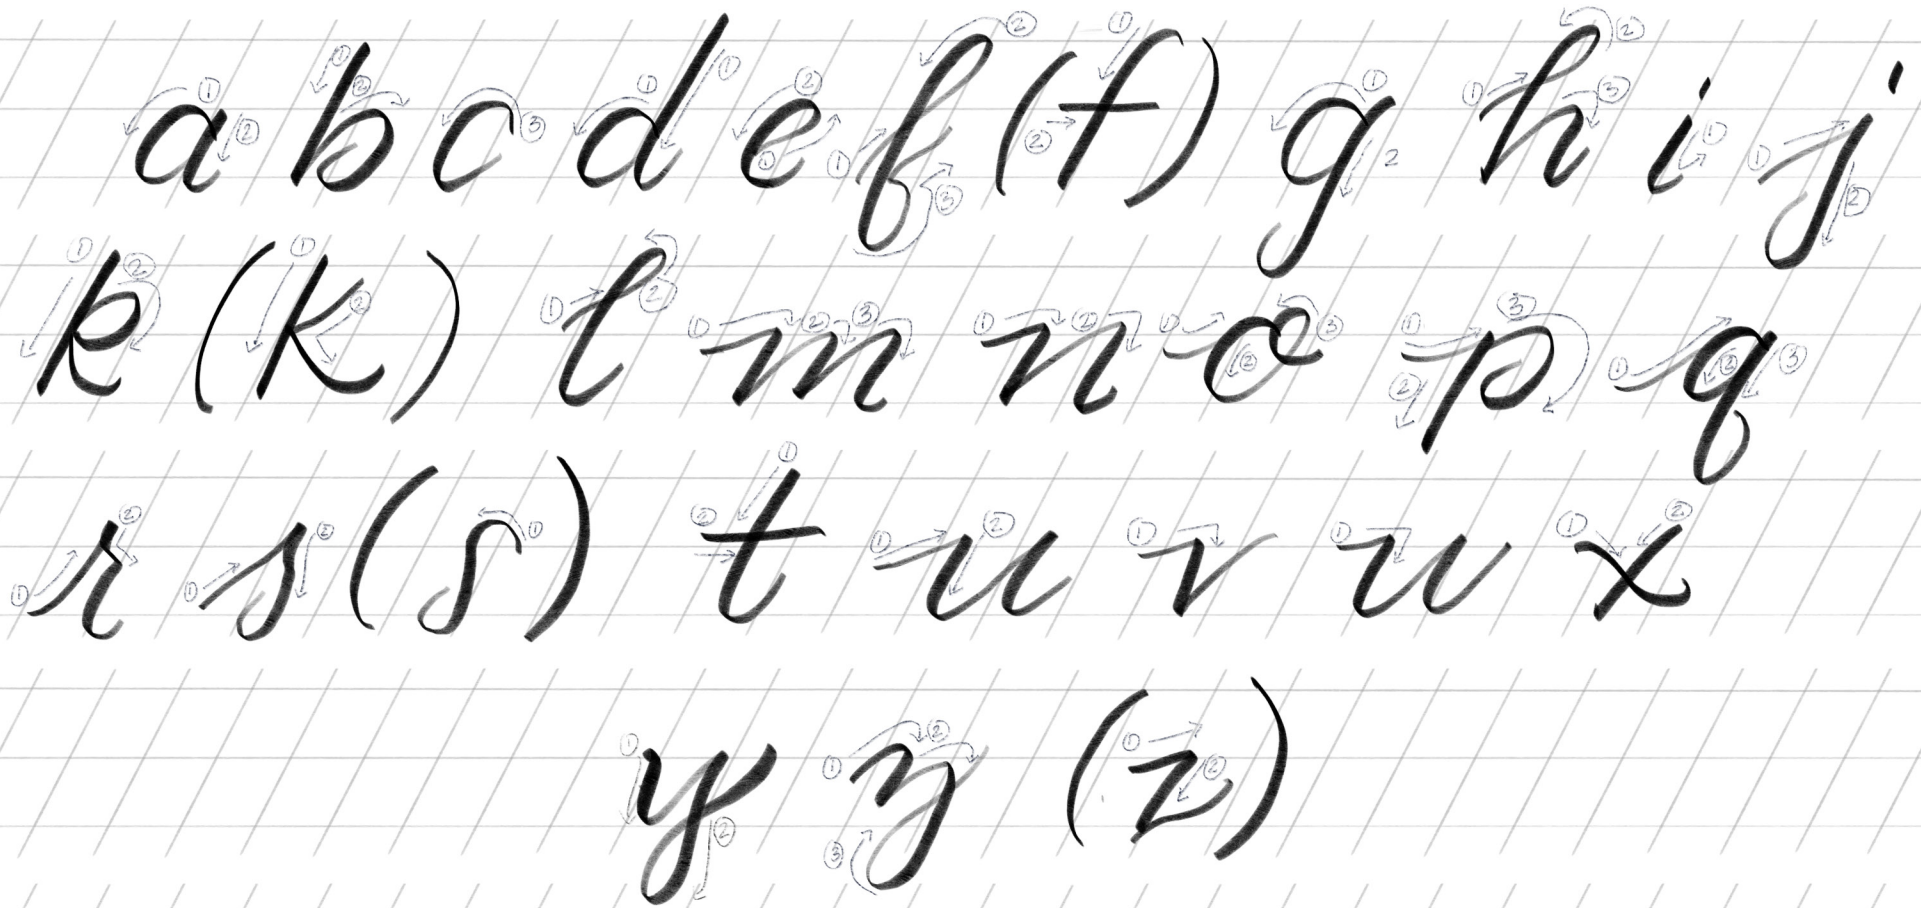 a b c d e f (f) g h i j
k (k) l m n o p q
r s (s) t u v w x
y z (z)